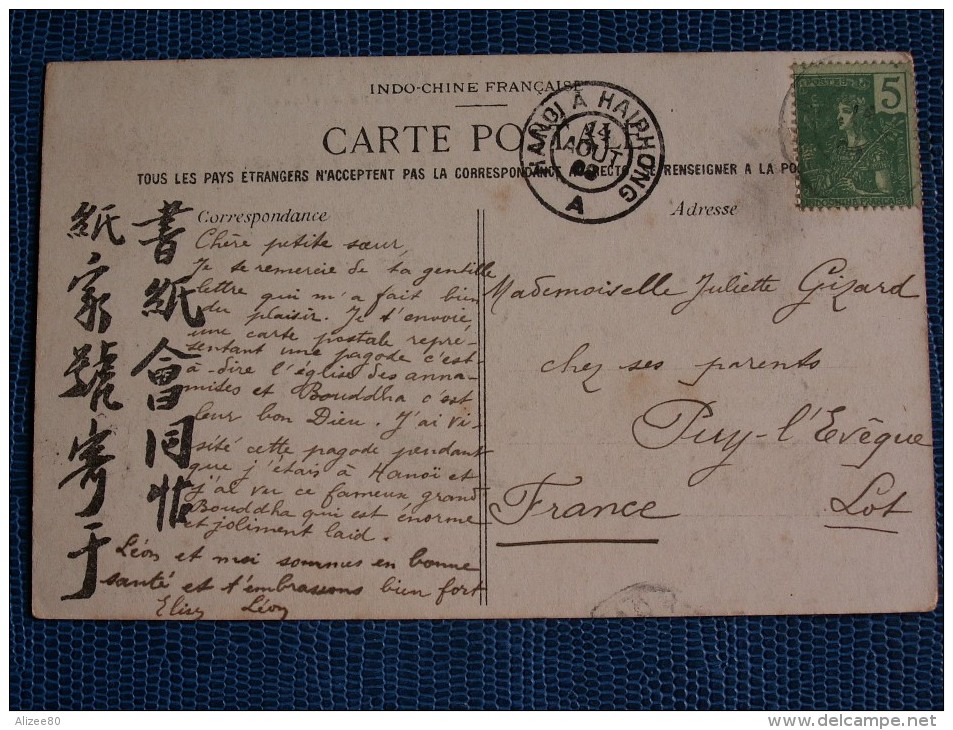 INDO-CHINE FRANÇAISE
CARTE POSTALE
TOUS LES PAYS ÉTRANGERS N'ACCEPTENT PAS LA CORRESPONDANCE AU RECTO. SE RENSEIGNER A LA POSTE
HANOI À HAIPHONG
14
AOUT
A
5
INDOCHINE FRANÇAISE
書紙會同
紙家號寄于
Correspondance
Chère petite sœur,
Je te remercie de ta gentille
lettre qui m'a fait bien
du plaisir. Je t'envoie
une carte postale repré-
sentant une pagode c'est-
à-dire l'église des anna-
mites et Bouddha c'est
leur bon Dieu. J'ai vi-
sité cette pagode pendant
que j'étais à Hanoï et
j'ai vu ce fameux grand
Bouddha qui est énorme
et joliment laid.
Léon et moi sommes en bonne
santé et t'embrassons bien fort
Elisy Léon
Adresse
Mademoiselle Juliette Gizard
chez ses parents
Puy-l'Evêque
Lot
France
Alizee80
delcampe.net